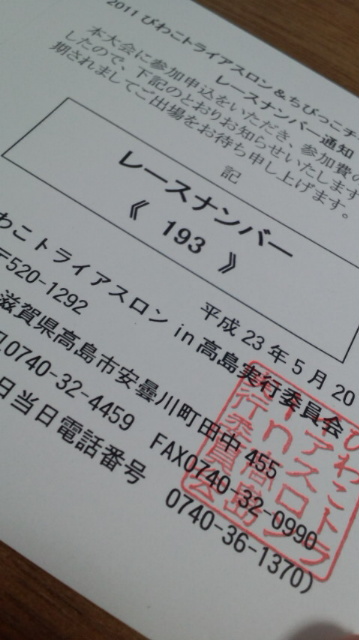 2011 びわこトライアスロン＆ちびっこチ
レースナンバー通知
本大会に参加申込をいただき、参加費の
したので、下記のとおりお知らせいたします
期されましてご出場をお待ち申し上げます。
記
レースナンバー
《 193 》
平成 23 年 5 月 20
わこトライアスロン in 高島実行委員会
〒520-1292
滋賀県高島市安曇川町田中 455
0740-32-4459 FAX0740-32-0990
日当日電話番号 0740-36-1370)
びわこトラ
イアスロン
in高島
実行委員会